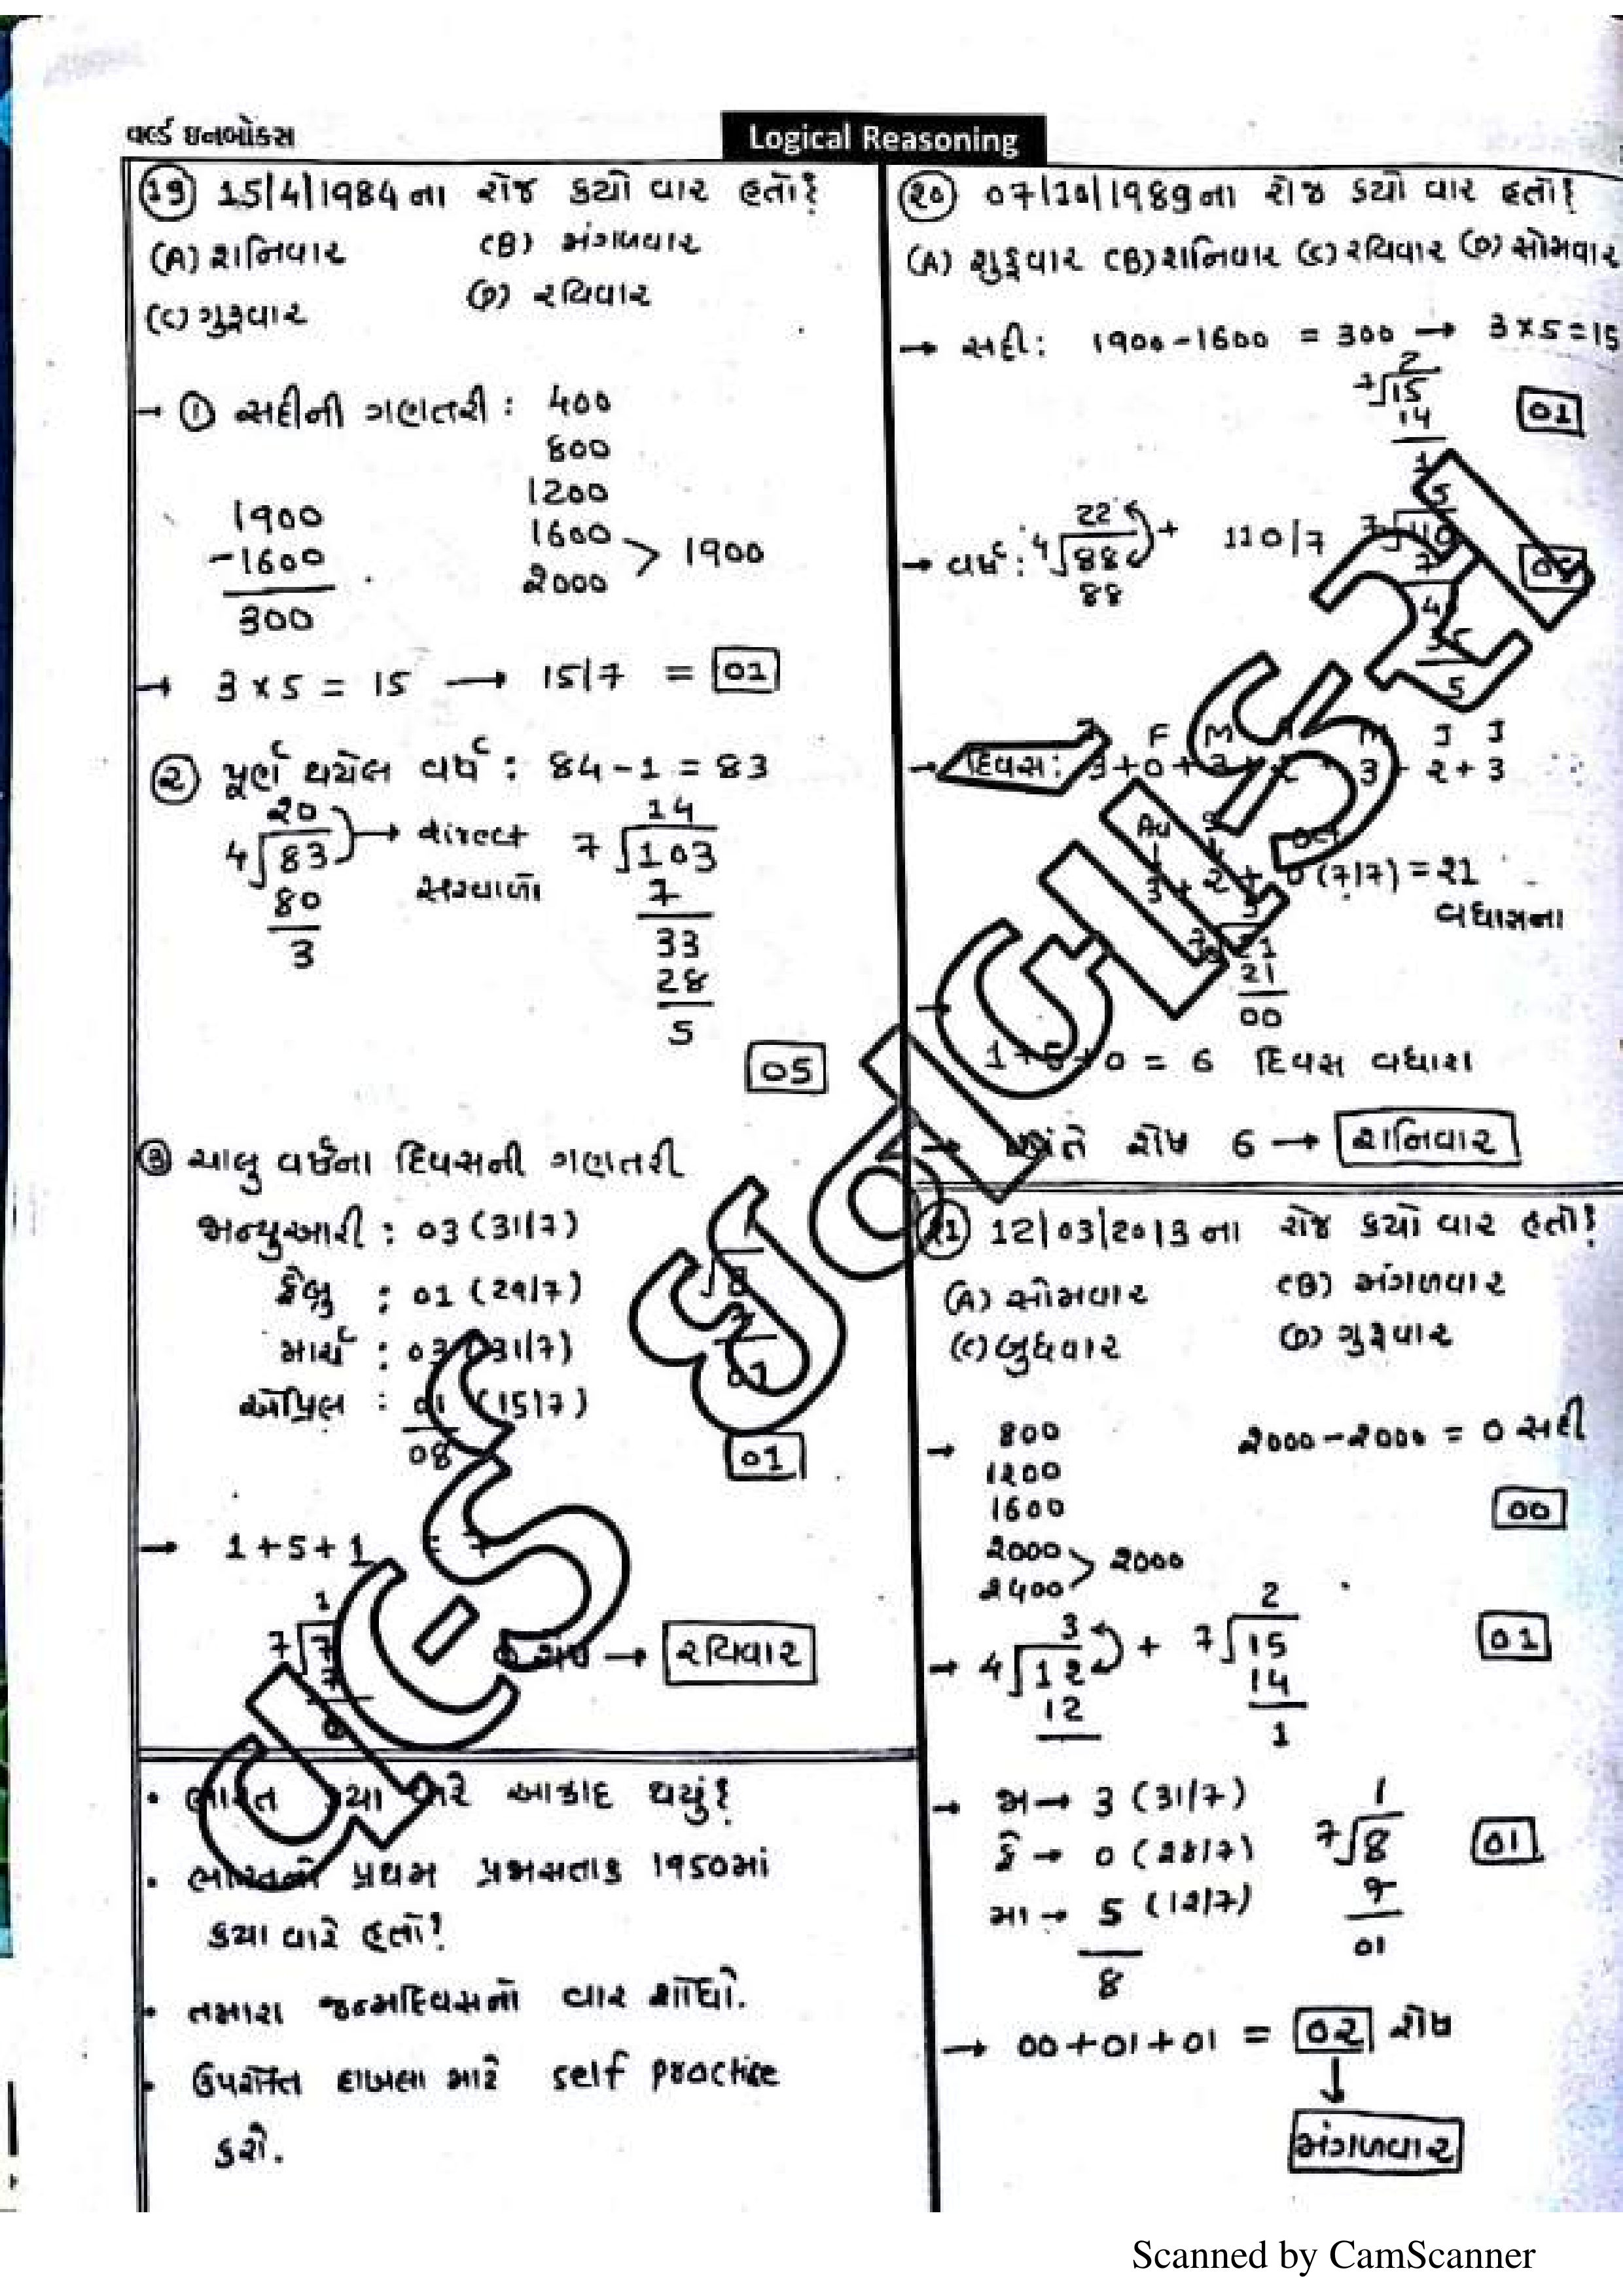 વર્લ્ડ ઇનબોક્સ
Logical Reasoning
(19) 15/4/1984 ના રોજ કયો વાર હતો?
(A) શનિવાર (B) મંગળવાર
(C) ગુરૂવાર (D) રવિવાર
→ (૧) સદીની ગણતરી : 400
800
1200
1600
2000 > 1900
1900
-1600
300
→ 3 x 5 = 15 → 15/7 = 01
(૨) પૂર્ણ થયેલ વર્ષ : 84 - 1 = 83
20
4 83 →
80
3
સરવાળો
14
7 103
7
33
28
5
05
(૩) ચાલુ વર્ષના દિવસની ગણતરી
જાન્યુઆરી : 03 (31/7)
ફેબ્રુ : 01 (29/7)
માર્ચ : 03 (31/7)
એપ્રિલ : 01 (15/7)
08
01
01
→ 1 + 5 + 1
1
7 7
→ રવિવાર
• ભારત કયા વારે આઝાદ થયું?
• ભારતનો પ્રથમ પ્રજાસત્તાક 1950માં
કયા વારે હતો?
• તમારા જન્મદિવસનો વાર શોધો.
• ઉપરોક્ત દાખલા માટે self practice
કરો.
(૨૦) 07/10/1989 ના રોજ કયો વાર હતો?
(A) શુક્રવાર (B) શનિવાર (C) રવિવાર (D) સોમવાર
→ સદી : 1900 - 1600 = 300 → 3 x 5 = 15
2
7 15
14
1
01
→ વર્ષ : 4 88 22 + 110/7
88
5
→ દિવસ : 3 + 0 + 3 + 2 + 3 + 2 + 3
0 (7/7) = 21
વધારાના
21
00
1 + 5 + 0 = 6 દિવસ વધારા
→ અંતે શેષ 6 → શનિવાર
(૨1) 12/03/2013 ના રોજ કયો વાર હતો?
(A) સોમવાર (B) મંગળવાર
(C) બુધવાર (D) ગુરૂવાર
→ 800
1200
1600
2000
2400 > 2000
2000 - 2000 = 0 સદી
00
→ 4 12 3 +
12
2
7 15
14
1
01
→ જા → 3 (31/7)
ફે → 0 (28/7)
મા → 5 (12/7)
8
1
7 8
7
01
01
→ 00 + 01 + 01 = 02 શેષ
↓
મંગળવાર
Scanned by CamScanner